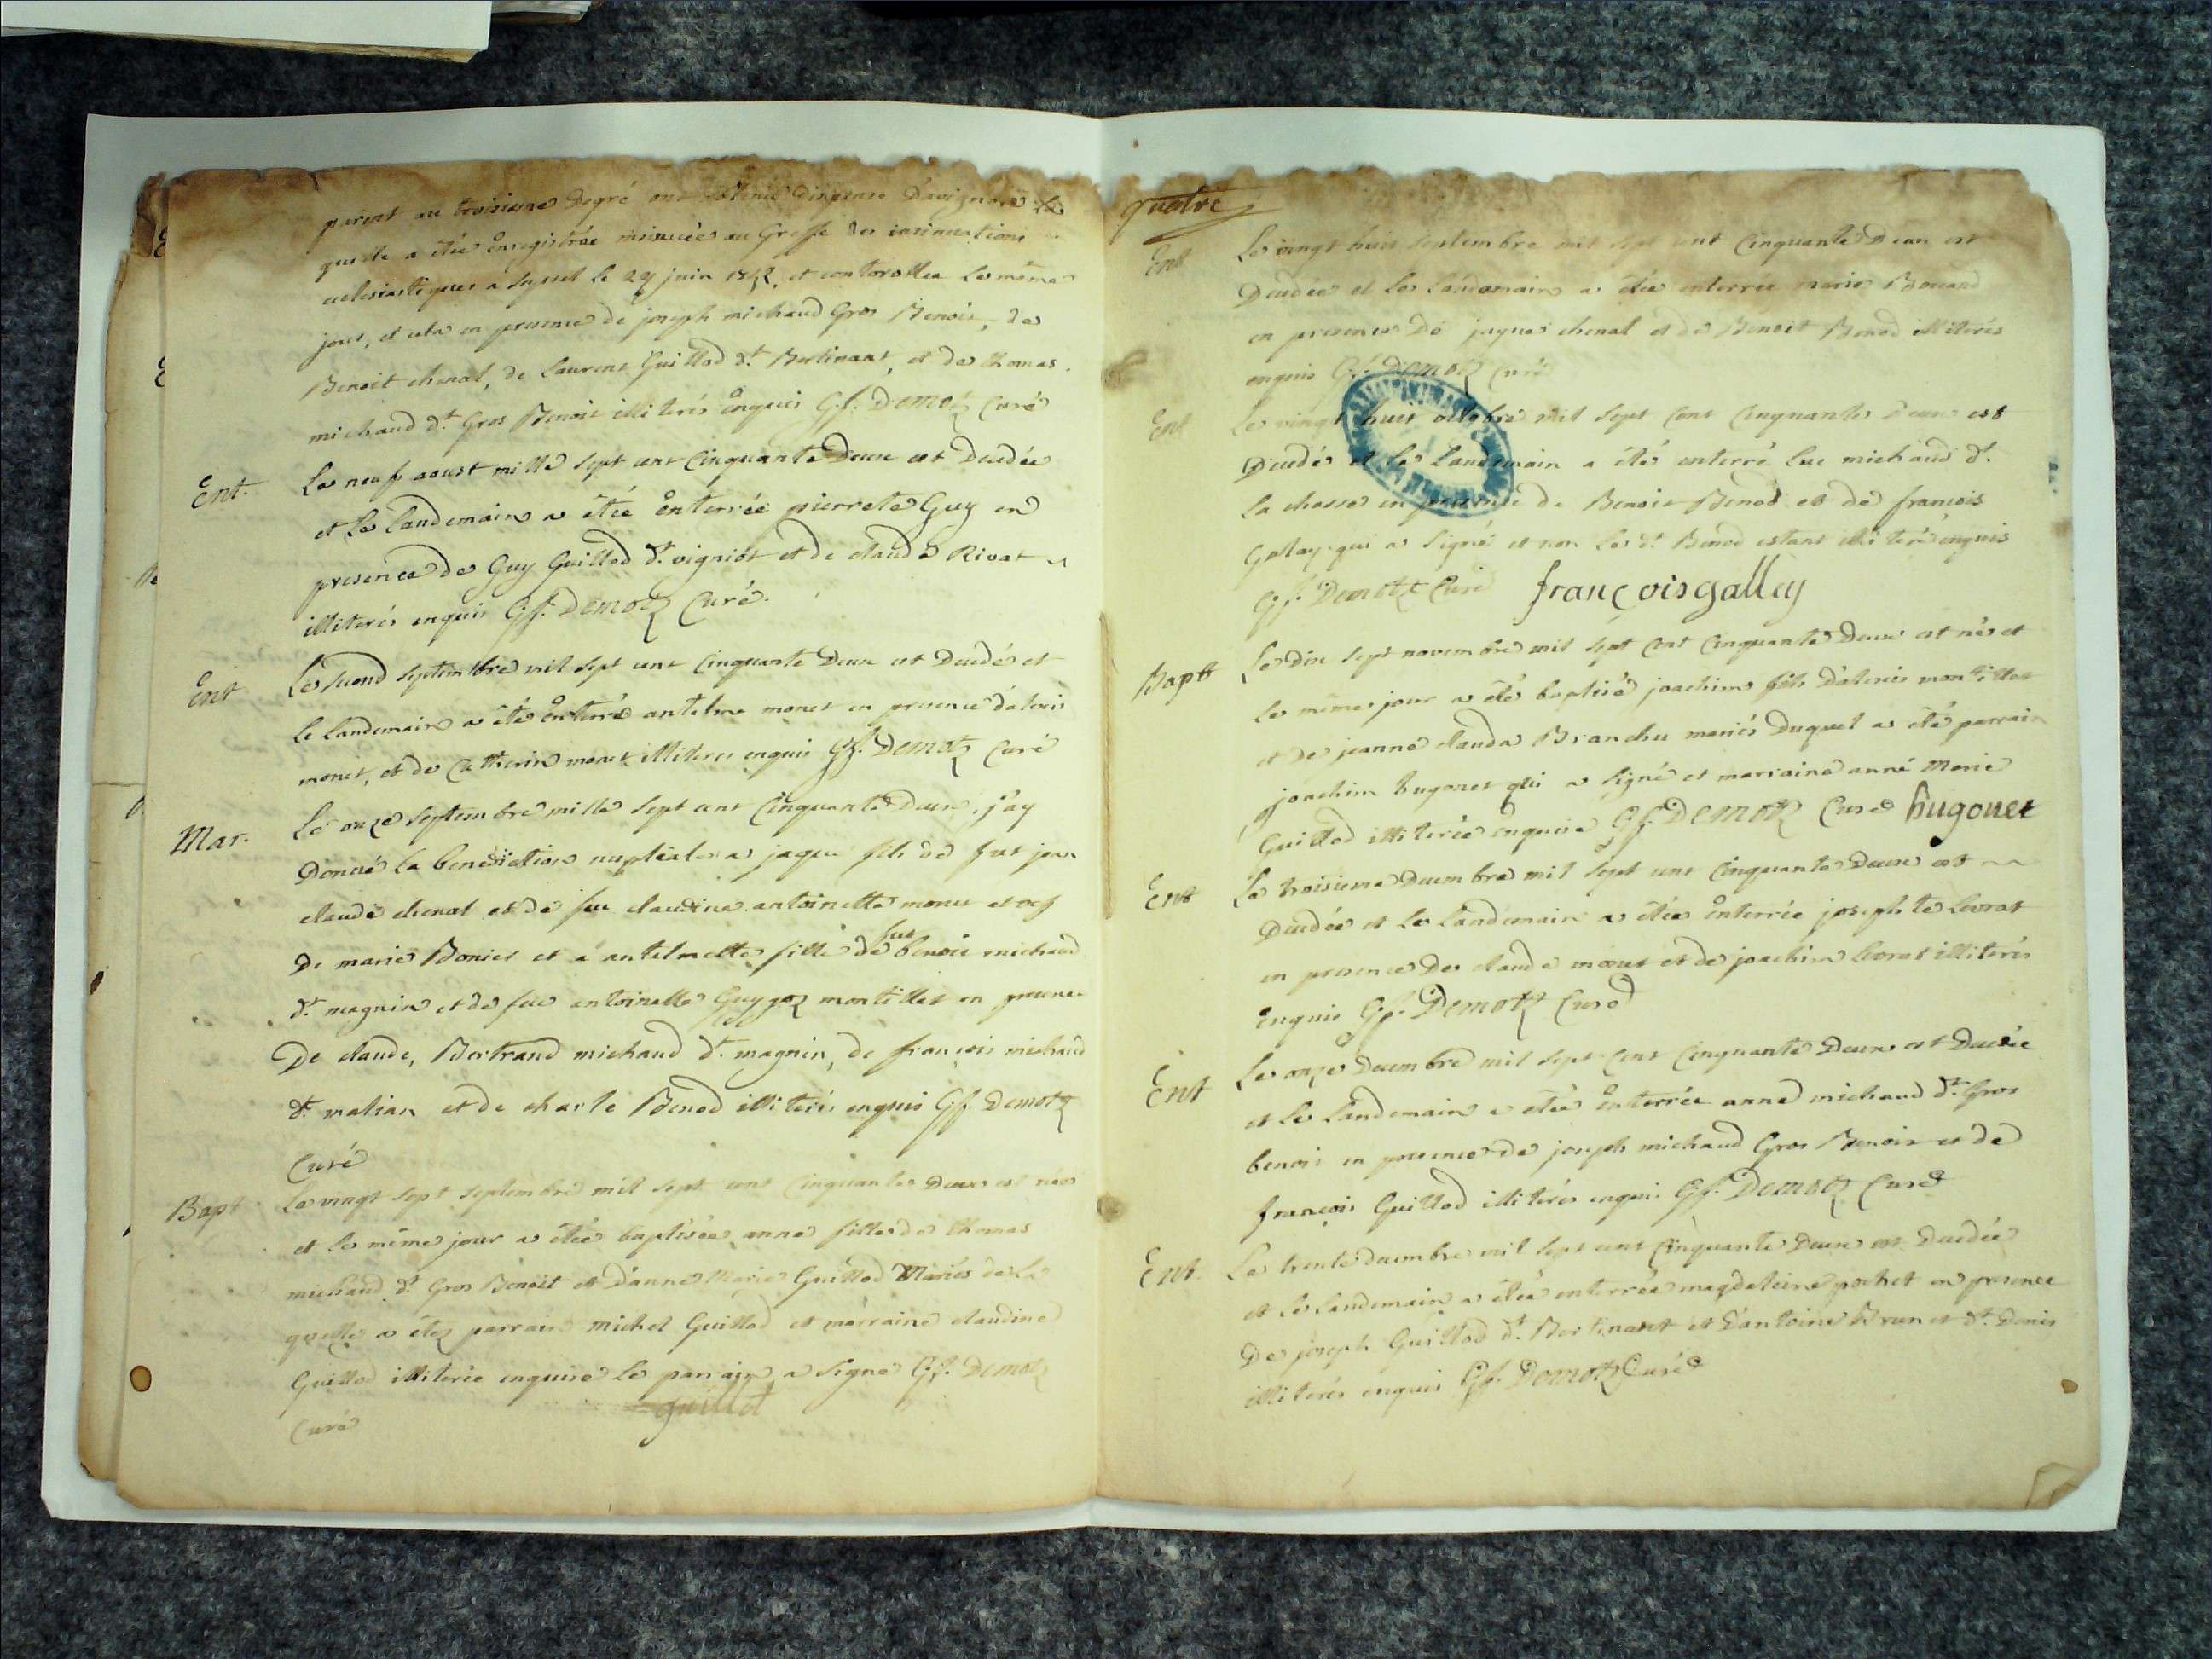 parent au troisieme Degré ont obtenu Dispense D'avignon
quelle a étée Enregistrée insinuée au Greffe des insinuations
eclesiastiques a Seyssel le 29 juin 1752, et controllee le même
jour, et cela en presence de joseph michaud Gros Benoit, de
Benoit chenal, de Laurent Guillod dt. Bertinant, et de thomas
michaud dt. Gros Benoit illiterés Enquis Gf. Demotz Curé
Ent. Le neuf aoust mille sept cent Cinquante Deux est Decedée
et le landemain a étée Enterrée pierrete Guy en
presence de Guy Guillod dt. vigniot et de claude Rivat
illiterés enquis Gf. Demotz Curé.
Ent Le second septembre mil sept cent Cinquante Deux est Decedé et
le landemain a été Enterré antelme monet en presence d'alexis
monet, et de Catherin monet illiteres enquis Gf. Demotz Curé
Mar. Le onze septembre mille sept cent Cinquante Deux j'ay
Donné la benediction nuptiale a jaque fils de fut jean
claude chenal et de feu claudine antoinette monet et
De marie Bonier et á antelmette fille de fut benoit michaud
dt. magnin et de feue antoinette Guygoz montillet en presence
De claude, Bertrand michaud dt. magnin, de françois michaud
dt. malian et de charle Benod illiterés enquis Gf. Demotz
Curé
Bapt Le vingt sept septembre mil sept cent Cinquante Deux est née
et le même jour a étée baptisée anne fille de thomas
michaud dt. Gros Benoit et D'anne Marie Guillod Mariés de la
quelle a étez parrain michel Guillod et marraine claudine
Guillod illiterée enquise le parrain a signé Gf. Demotz
Curé guillot
quatre
Ent Le vingt huit septembre mil sept cent Cinquante Deux est
Decedée et le landemain a étée enterrée marie Bonard
en presence De jaques chenal et de Benoit Benod illiterés
enquis Gf. Demotz Curé
Ent Le vingt huit octobre mil sept cent Cinquante Deux est
Decedé et le landemain a été enterré luc michaud dt.
la chasse en presence de Benoit Benod et de francois
Gallay qui a signé et non le dt. Benod estant illiteré enquis
Gf. Demotz Curé françois galley
Bapt Le Dix sept novembre mil sept cent Cinquante Deux est né et
le même jour a été baptisé joachim fils d'alexis montillet
et de jeanne clauda Branchu mariés Duquel a été parrain
joachim hugonet qui a signé et marraine anne Marie
Guillod illiterée enquise Gf. Demotz Curé hugonet
Ent Le troisieme Decembre mil sept cent Cinquante Deux est
Decedée et le landemain a étée Enterrée josephte Levrat
en presence De claude monet et de joachim levrat illiterés
Enquis Gf. Demotz Curé
Ent Le onze Decembre mil sept cent Cinquante Deux est Decedée
et le landemain a étée Enterrée anne michaud dt. Gros
benoit en presence de joseph michaud Gros Benoit et de
françois Guillod illiterés enquis Gf. Demotz Curé
Ent. Le trente decembre mil sept cent Cinquante Deux est Decedée
et le landemain a étée enterrée magdeleine pochet en presence
De joseph Guillod dt. Bertinant et D'antoine Brunet dt. Denis
illiterés enquis Gf. Demotz Curé